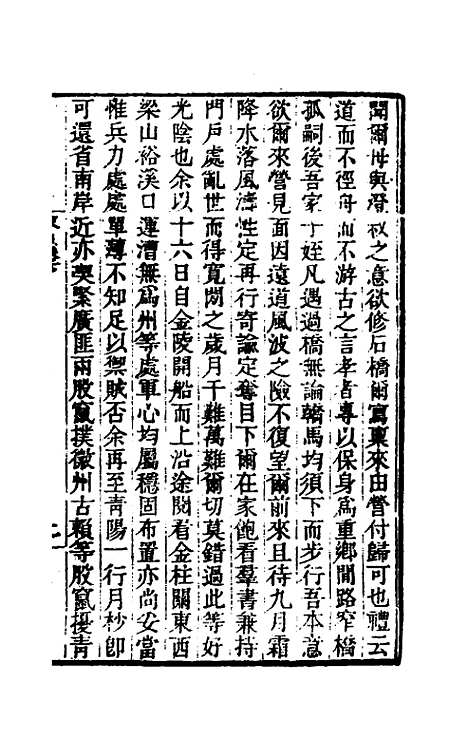 聞爾母與澄叔之意欲修石橋爾寫稟來由營付歸可也禮云
道而不徑舟而不游古之言孝者專以保身爲重鄉間路窄橋
孤嗣後吾家子姪凡遇過橋無論轎馬均須下而步行吾本意
欲爾來營見面因遠道風波之險不復望爾前來且待九月霜
降水落風濤性定再行寄諭定奪目下爾在家飽看羣書兼持
門戶處亂世而得寬閒之歲月千難萬難爾切莫錯過此等好
光陰也余以十六日自金陵開船而上沿途閱看金柱關東西
梁山裕溪口運漕無爲州等處軍心均屬穩固布置亦尚妥當
惟兵力處處單薄不知足以禦賊否余再至青陽一行月杪卽
可還省南岸近亦喫緊廣匪兩股竄撲徽州古賴等股竄擾青